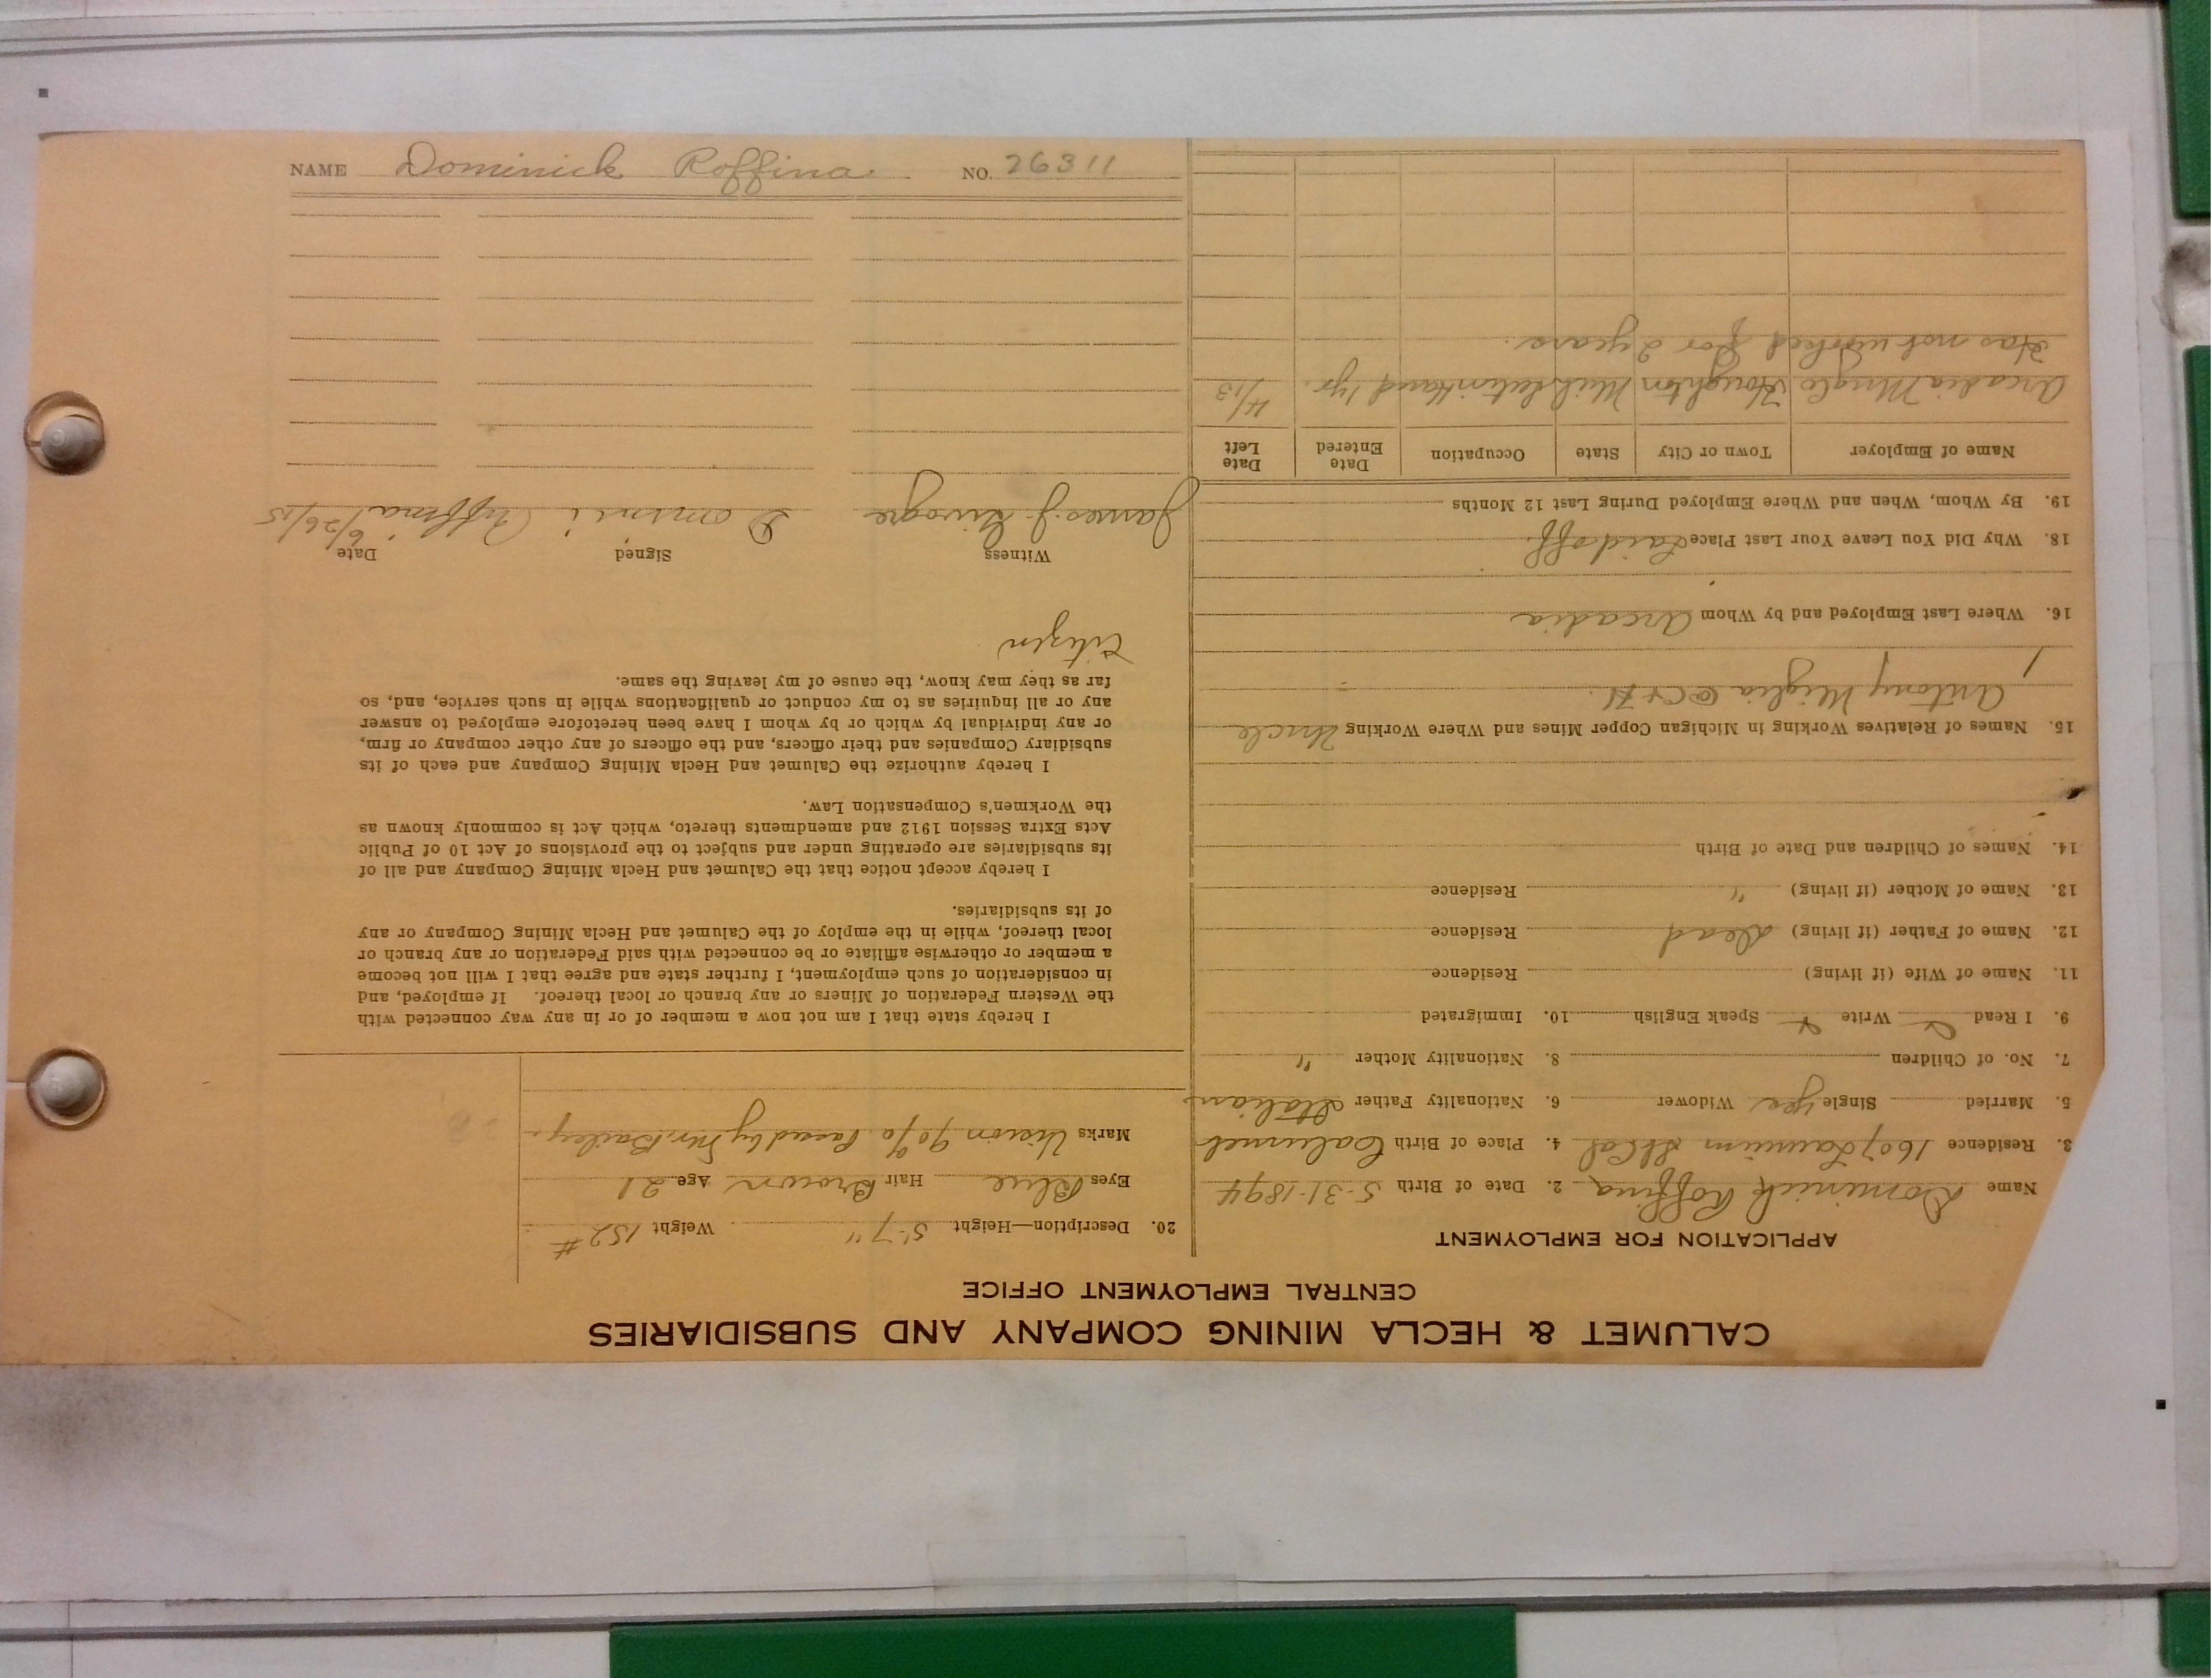 NAME Dominick Roffina NO. 26311
CALUMET & HECLA MINING COMPANY AND SUBSIDIARIES
CENTRAL EMPLOYMENT OFFICE
APPLICATION FOR EMPLOYMENT
Name Dominick Roffina 2. Date of Birth 5-31-1894
3. Residence 1607 Laurium St Cal 4. Place of Birth Calumet
5. Married Single yes Widower 6. Nationality Father Italian
7. No. of Children 8. Nationality Mother "
9. I Read Write Speak English 10. Immigrated
11. Name of Wife (if living) Residence
12. Name of Father (if living) Dead Residence
13. Name of Mother (if living) " Residence
14. Names of Children and Date of Birth
15. Names of Relatives Working in Michigan Copper Mines and Where Working Uncle
Antony Miglia @ C + H.
16. Where Last Employed and by Whom Arcadia
18. Why Did You Leave Your Last Place Laid off.
19. By Whom, When and Where Employed During Last 12 Months
Name of Employer Town or City State Occupation Date Entered Date Left
Arcadia Houghton Mich 1 yr. 4/13
Has not worked for 2 years.
20. Description—Height 5'-7" Weight 152 #
Eyes Blue Hair Brown Age 21
Marks Vision 90% Passed by Mr. Bailey.
I hereby state that I am not now a member of or in any way connected with
the Western Federation of Miners or any branch or local thereof. If employed, and
in consideration of such employment, I further state and agree that I will not become
a member or otherwise affiliate or be connected with said Federation or any branch or
local thereof, while in the employ of the Calumet and Hecla Mining Company or any
of its subsidiaries.
I hereby accept notice that the Calumet and Hecla Mining Company and all of
its subsidiaries are operating under and subject to the provisions of Act 10 of Public
Acts Extra Session 1912 and amendments thereto, which Act is commonly known as
the Workmen's Compensation Law.
I hereby authorize the Calumet and Hecla Mining Company and each of its
subsidiary Companies and their officers, and the officers of any other company or firm,
or any individual by which or by whom I have been heretofore employed to answer
any or all inquiries as to my conduct or qualifications while in such service, and, so
far as they may know, the cause of my leaving the same.
Citizen
Witness Signed Date
James J. 6/26/15